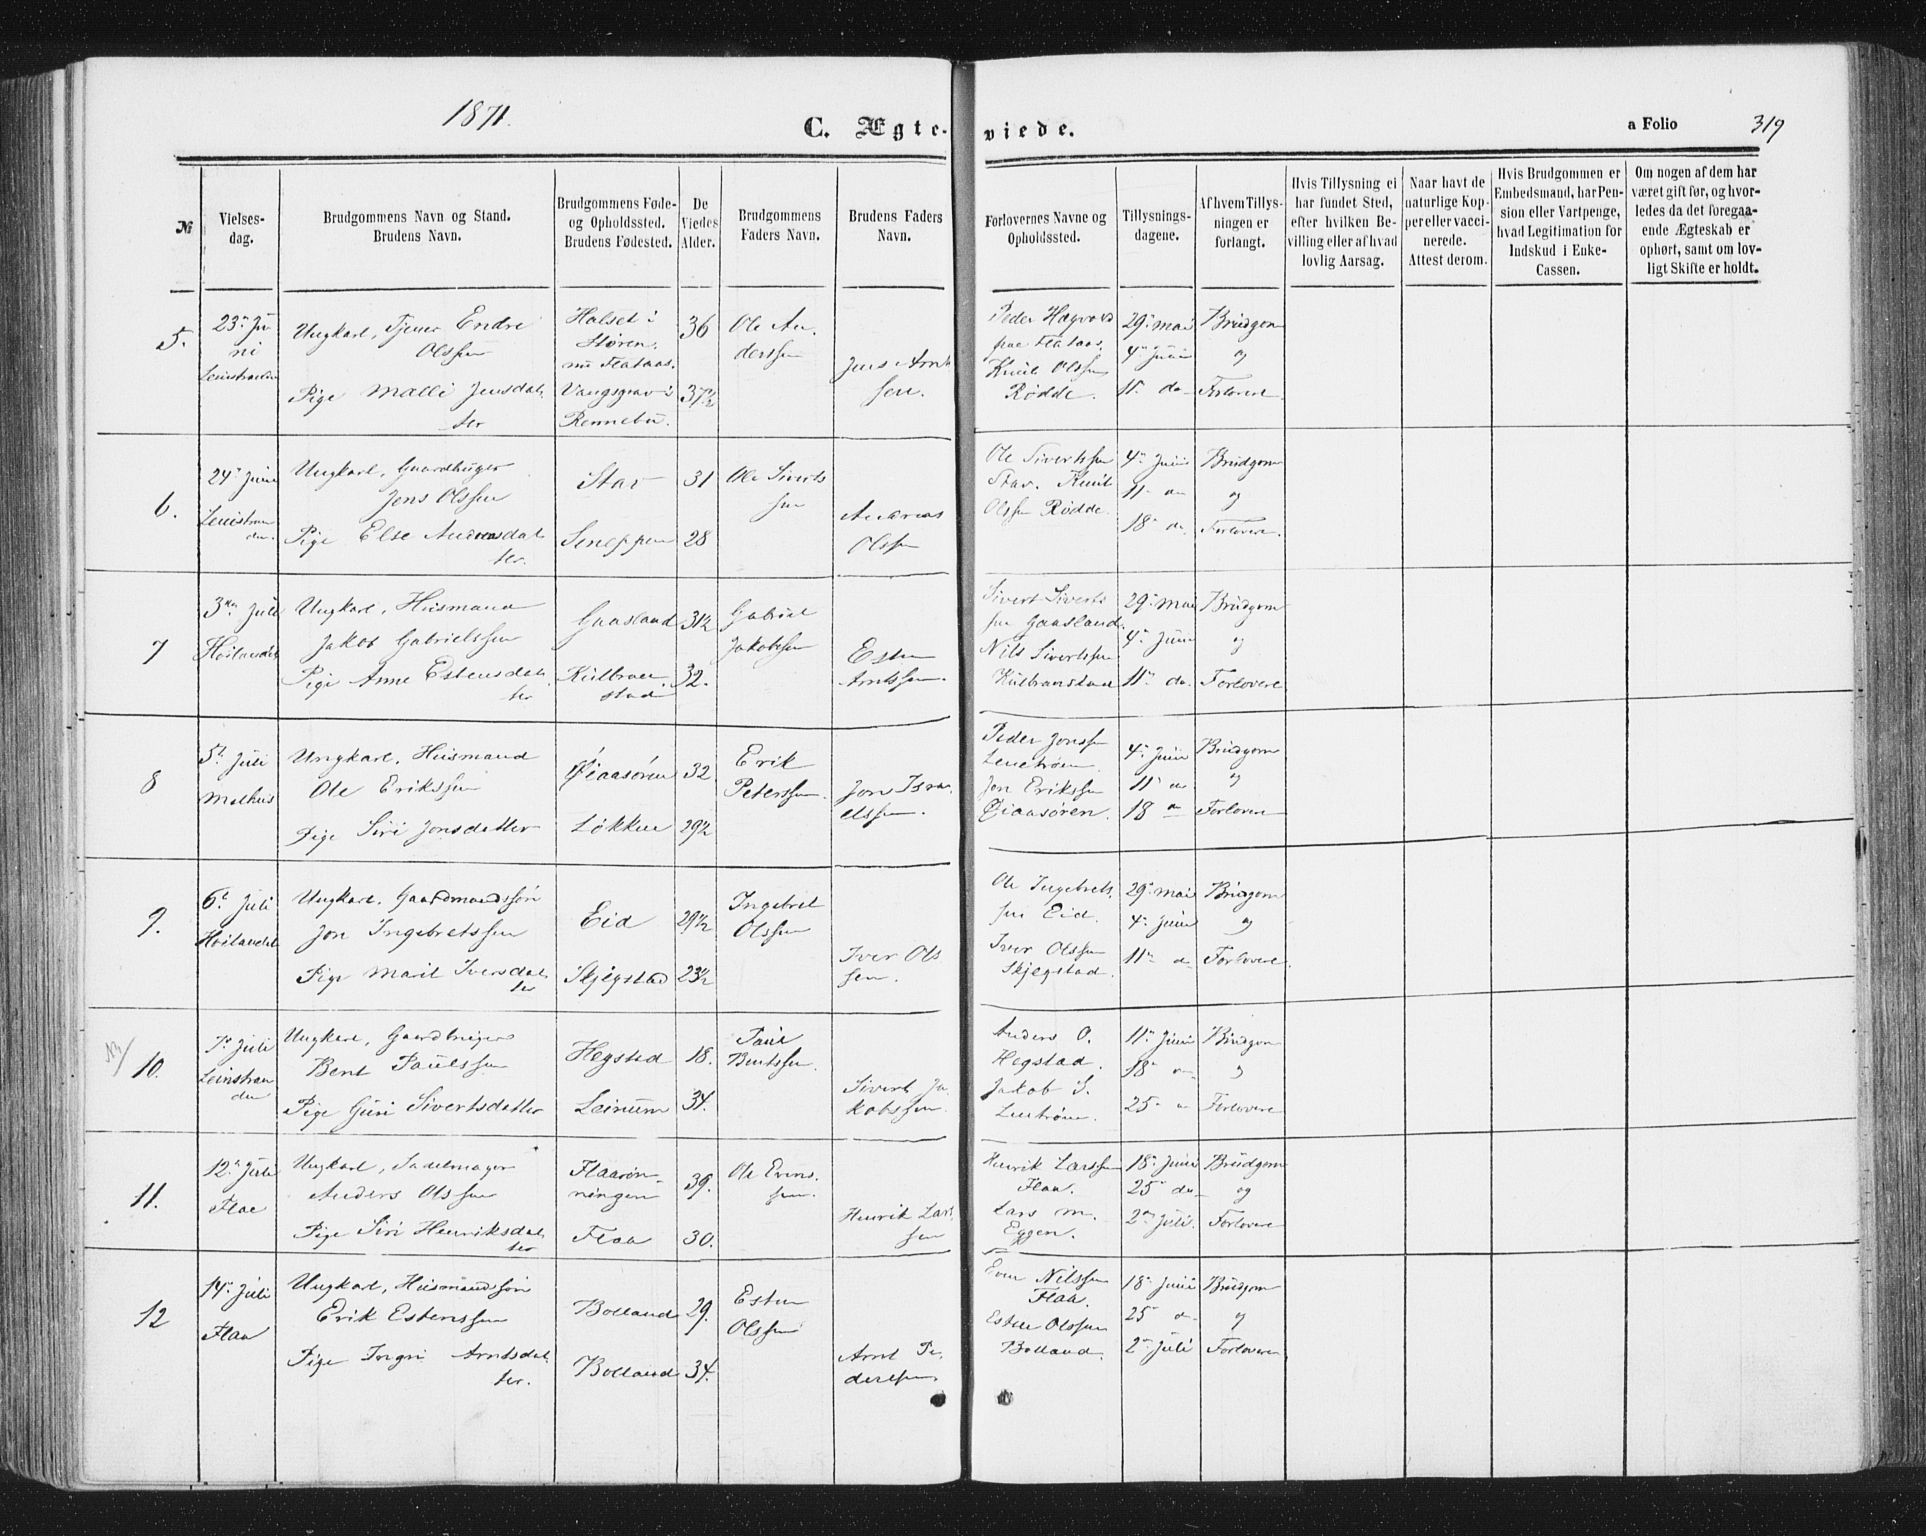 1871.
C. Ægte-
viede.
a Folio 319
№
Vielses-
dag.
Brudgommens Navn og Stand.
Brudens Navn.
Brudgommens Føde-
og Opholdssted.
Brudens Fødested.
De
Viedes
Alder.
Brudgommens
Faders Navn.
Brudens Faders
Navn.
Forlovernes Navne og
Opholdssted.
Tillysnings-
dagene.
Af hvem Tillys-
ningen er
forlangt.
Hvis Tillysning ei
har fundet Sted,
efter hvilken Be-
villing eller af hvad
lovlig Aarsag.
Naar havt de
naturlige Kop-
per eller vacci-
nerede.
Attest derom.
Hvis Brudgommen er
Embedsmand, har Pen-
sion eller Vartpenge,
hvad Legitimation for
Indskud i Enke-
Cassen.
Om nogen af dem har
været gift før, og hvor-
ledes da det foregaa-
ende Ægteskab er
ophørt, samt om lov-
ligt Skifte er holdt.
5.
23de Ju-
ni
Leinstranden
Ungkarl, Tjener Endre
Olssen
Pige Malli Jensdat-
ter
Halset i
Støren,
nu Flataas.
Vangsgrav i
Rennebu.
36
37½
Ole An-
derssen
Jens Arnt
sen.
Peder Hagvold
paa Flataas.
Knut Olssen
Rødde.
29de Mai
4de Juni
11te do
Brudgom
og
Forlovere
6.
24de Juni
Leinstran
den.
Ungkarl, Gaardbruger
Jens Olssen
Pige Else Andreasdat
ter.
Stav
Sneppen
31
28
Ole Siverts
sen
Andreas
Olssen
Ole Sivertssen
Stav. Knut
Olssen Rødde.
4de Juni
11te do
18de do
Brudgom
og
Forlovere.
7
3die Juli
Høilandet
Ungkarl, Husmand
Jakob Gabrielssen
Pige Anne Estensdat-
ter
Gaasland
Kulbran
stad
31½
32.
Gabriel
Jakobssen
Esten
Arntssen.
Sivert Siverts
sen Gaasland.
Nils Sivertssen
Kulbranstad
29de Mai
4de Juni
11te do.
Brudgom
og
Forlovere
8
5te Juli
Melhus
Ungkarl, Husmand
Ole Erikssen
Pige Siri Jonsdatter
Øiaasøren
Løkken
32
29½
Erik
Peterssen.
Jon Isra-
elssen.
Peder Jonssen
Lenetrøen.
Jon Erikssen
Øiaasøren.
4de Juni
11te do
18 do
Brudgom
og
Forlovere
9.
6te Juli
Høilandet
Ungkarl, Gaardmandssøn
Jon Ingebretssen
Pige Marit Iversdat-
ter
Eid
Skjegstad
29½
23½
Ingebret
Olssen
Iver Ols
sen.
Ole Ingebrets
sen Eid.
Iver Olssen
Skjegstad.
29de Mai
4de Juni
11te do
Brudgom
og
Forlovere.
10.
7de Juli
Leinstran
den
Ungkarl, Gaardbruger
Bent Paulssen
Pige Guri Sivertsdatter
Hegstad
Leinum
18.
34.
Paul
Bentssen.
Sivert Ja-
kobssen.
Anders O.
Hegstad.
Jakob S.
Lentrøen.
11te Juni
18de do
25de do
Brudgom
og
Forlovere
11.
12te Juli
Flaa
Ungkarl, Sadelmager
Anders Olssen
Pige Siri Henriksdat-
ter
Flaarøn-
ningen
Flaa
39.
30.
Ole Evens
sen.
Henrik Lars
sen
Henrik Larssen
Flaa.
Lars M.
Eggen.
18de Juni
25de do
2den Juli.
Brudgom
og
Forlovere
12
14de Juli
Flaa
Ungkarl, Husmandssøn
Erik Estenssen
Pige Ingri Arntsdat-
ter.
Bolland
Bolland
29.
34.
Esten
Olssen
Arnt Pe-
derssen
Even Nilssen
Flaa.
Esten Olssen
Bolland.
18de Juni
25de do
2den Juli
Brudgom
og
Forlovere